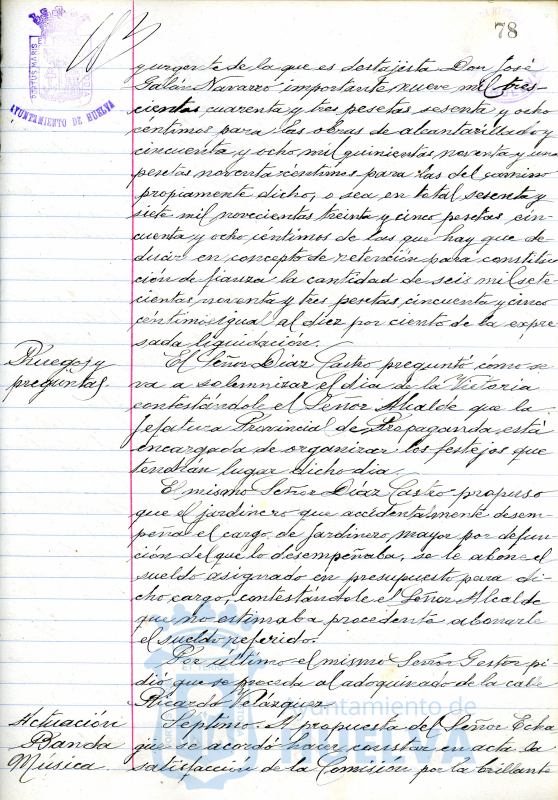 78
PORTUS MARIS
AYUNTAMIENTO DE HUELVA
y urgente de la que es destajista Don José
Galán Navarro importante nueve mil tres-
cientas cuarenta y tres pesetas sesenta y ocho
céntimos para las obras de alcantarillado y
cincuenta y ocho mil quinientas noventa y una
pesetas noventa céntimos para las del camino
propiamente dicho, o sea en total sesenta y
siete mil novecientas treinta y cinco pesetas cin-
cuenta y ocho céntimos de las que hay que de-
ducir en concepto de retención para constitu-
ción de fianza la cantidad de seis mil sete
cientas noventa y tres pesetas cincuenta y cinco
céntimos igual al diez por ciento de la expre-
sada liquidación.
Ruegos y
preguntas
El Señor Díaz Castro preguntó cómo se
va a solemnizar el día de la Victoria
contestándole el Señor Alcalde que la
Jefatura Provincial de Propaganda está
encargada de organizar los festejos que
tendrán lugar dicho día.
El mismo Señor Díaz Castro propuso
que el jardinero que accidentalmente desem-
peña el cargo de Jardinero mayor por defun-
ción del que lo desempeñaba, se le abone el
sueldo asignado en presupuesto para di-
cho cargo, contestándole el Señor Alcalde
que no estimaba procedente abonarle
el sueldo referido.
Por último el mismo Señor Gestor pi-
dió que se proceda al adoquinado de la calle
Ricardo Velázquez.
Actuación
Banda
Música
Séptimo. A propuesta del Señor
que se acordó hacer constar en acta la
satisfacción de la Comisión por la brillante
Ayuntamiento de
HUELVA